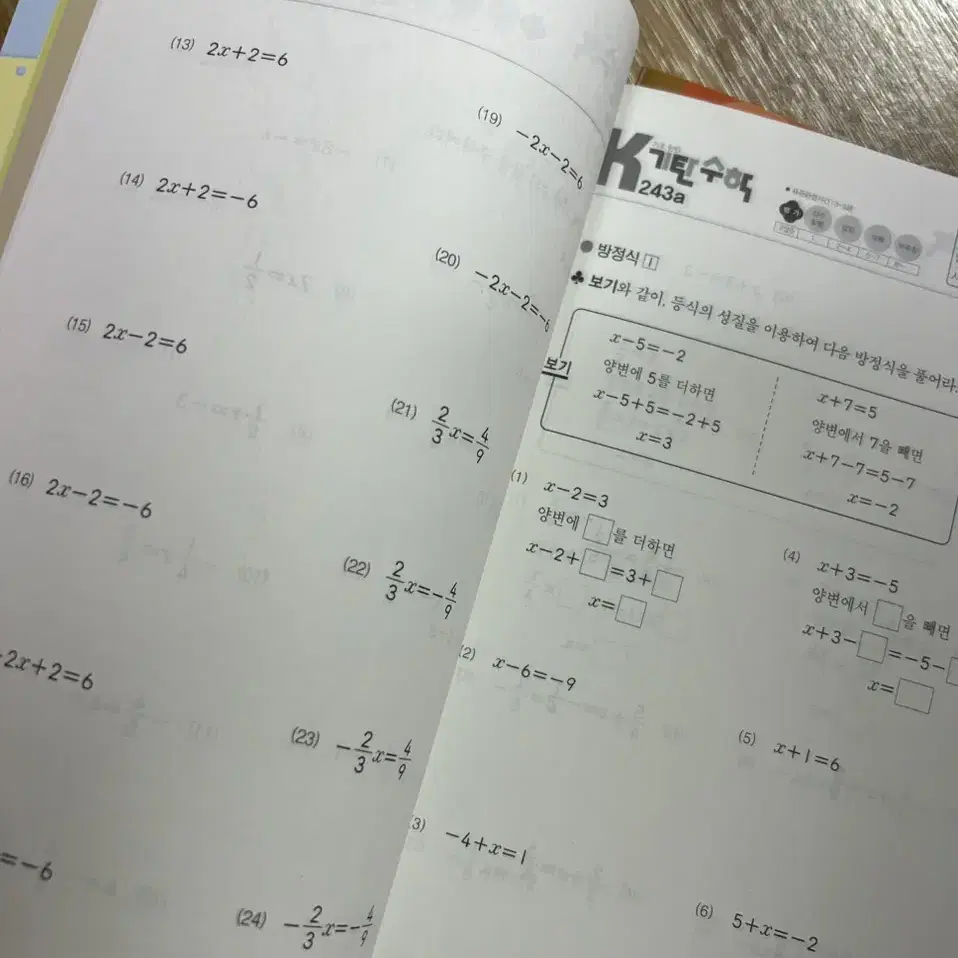 (13) 2x+2=6
(14) 2x+2=-6
(15) 2x-2=6
(16) 2x-2=-6
2x+2=6
=-6
(19) -2x-2=6
(20) -2x-2=-6
(21) 2/3 x=4/9
(22) 2/3 x=-4/9
(23) -2/3 x=4/9
(24) -2/3 x=-4/9
K 기탄수학
243a
● 방정식 1
♣ 보기와 같이, 등식의 성질을 이용하여 다음 방정식을 풀어라.
보기
x-5=-2
양변에 5를 더하면
x-5+5=-2+5
x=3
x+7=5
양변에서 7을 빼면
x+7-7=5-7
x=-2
(1) x-2=3
양변에 □를 더하면
x-2+□=3+□
x=□
(2) x-6=-9
(3) -4+x=1
(4) x+3=-5
양변에서 □을 빼면
x+3-□=-5-□
x=□
(5) x+1=6
(6) 5+x=-2